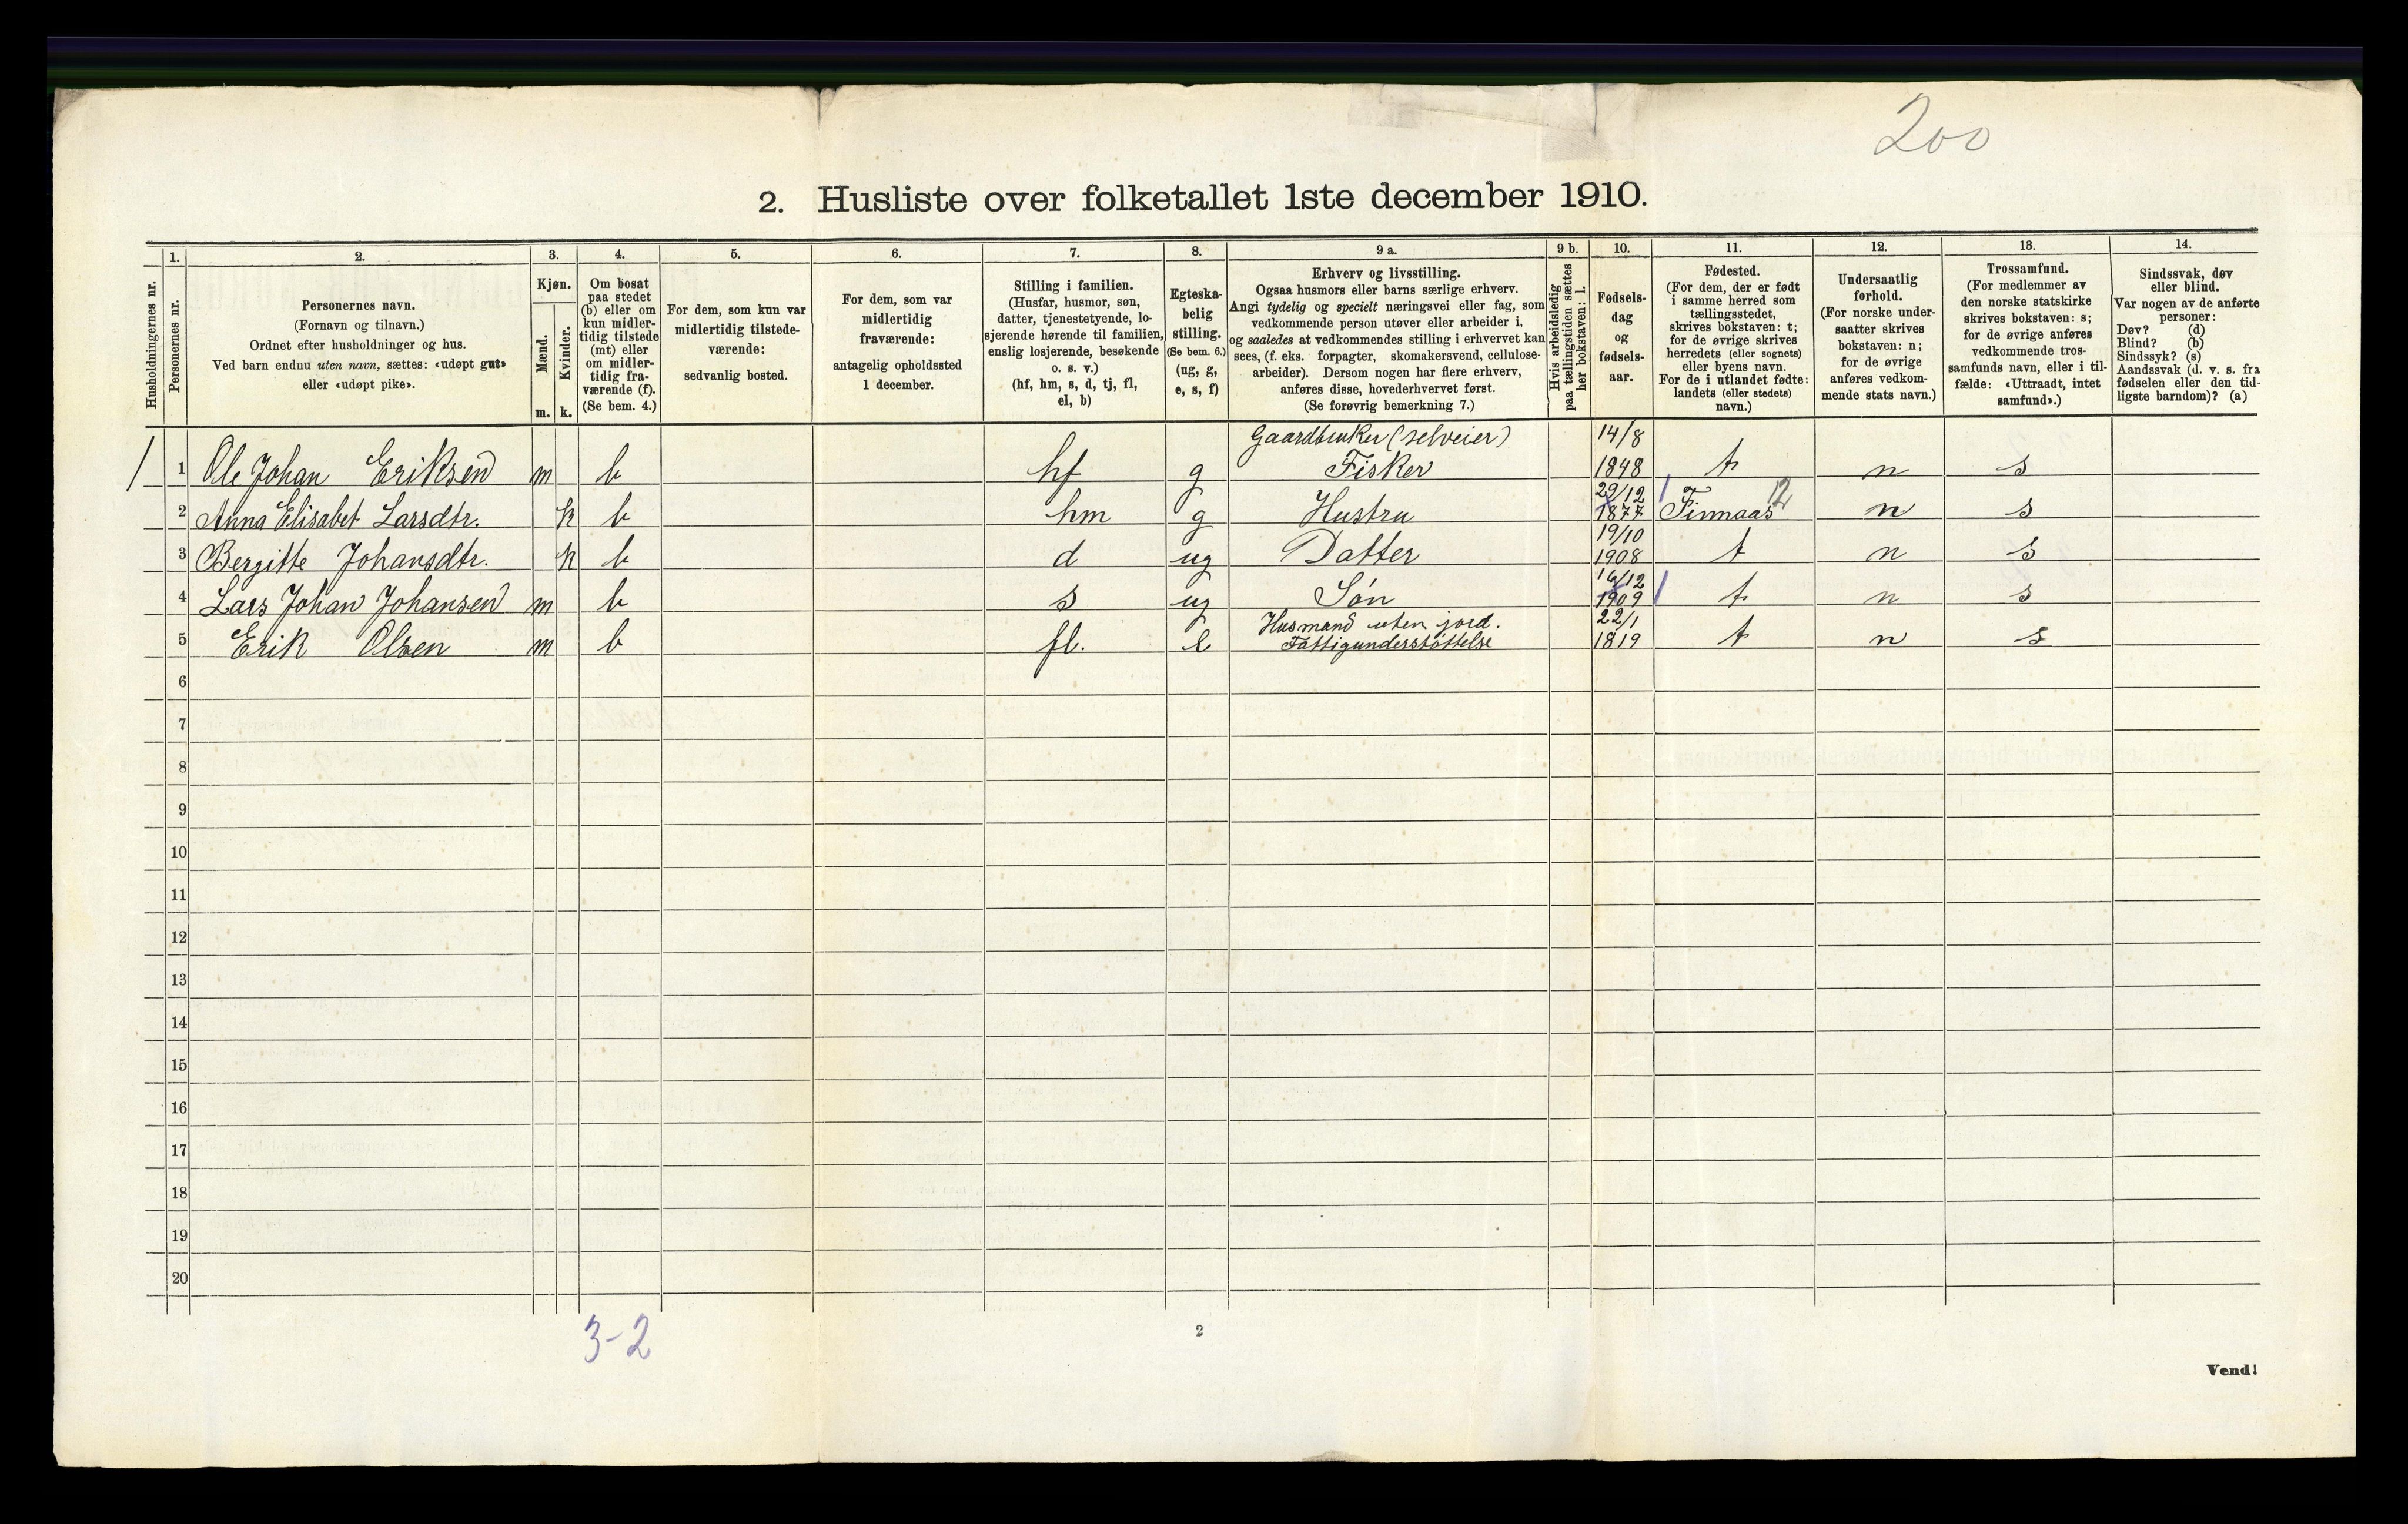 200
2. Husliste over folketallet 1ste december 1910.
Husholdningernes nr.
1.
Personernes nr.
2.
Personernes navn.
(Fornavn og tilnavn.)
Ordnet efter husholdninger og hus.
Ved barn endnu uten navn, sættes: «udøpt gut»
eller «udøpt pike».
3.
Kjøn.
Mænd.
m.
Kvinder.
k.
4.
Om bosat
paa stedet
(b) eller om
kun midler-
tidig tilstede
(mt) eller
om midler-
tidig fra-
værende (f).
(Se bem. 4.)
5.
For dem, som kun var
midlertidig tilstede-
værende:
sedvanlig bosted.
6.
For dem, som var
midlertidig
fraværende:
antagelig opholdssted
1 december.
7.
Stilling i familien.
(Husfar, husmor, søn,
datter, tjenestetyende, lo-
sjerende hørende til familien,
enslig losjerende, besøkende
o. s. v.)
(hf, hm, s, d, tj, fl,
el, b)
8.
Egteska-
belig
stilling.
(Se bem. 6.)
(ug, g,
e, s, f)
9 a.
Erhverv og livsstilling.
Ogsaa husmors eller barns særlige erhverv.
Angi tydelig og specielt næringsvei eller fag, som
vedkommende person utøver eller arbeider i,
og saaledes at vedkommendes stilling i erhvervet kan
sees, (f. eks. forpagter, skomakersvend, cellulose-
arbeider). Dersom nogen har flere erhverv,
anføres disse, hovederhvervet først.
(Se forøvrig bemerkning 7.)
9 b.
Hvis arbeidsledig
paa tællingstiden sættes
her bokstaven: l.
10.
Fødsels-
dag
og
fødsels-
aar.
11.
Fødested.
(For dem, der er født
i samme herred som
tællingsstedet,
skrives bokstaven: t;
for de øvrige skrives
herredets (eller sognets)
eller byens navn.
For de i utlandet fødte:
landets (eller stedets)
navn.)
12.
Undersaatlig
forhold.
(For norske under-
saatter skrives
bokstaven: n;
for de øvrige
anføres vedkom-
mende stats navn.)
13.
Trossamfund.
(For medlemmer av
den norske statskirke
skrives bokstaven: s;
for de øvrige anføres
vedkommende tros-
samfunds navn, eller i til-
fælde: «Uttraadt, intet
samfund».)
14.
Sindssvak, døv
eller blind.
Var nogen av de anførte
personer:
Døv? (d)
Blind? (b)
Sindssyk? (s)
Aandssvak (d. v. s. fra
fødselen eller den tid-
ligste barndom)? (a)
Gaardbruker (selveier) 14/8
1 1 Ole Johan Eriksen m b hf g Fisker 1848 t n s
29/12 12
2 Anna Elisabet Larsdtr. k b hm g Hustru 1877 Finnaas n s
19/10
3 Bergitte Johansdtr. k b d ug Datter 1908 t n s
16/12
4 Lars Johan Johansen m b s ug Søn 1909 t n s
Husmand uten jord. 22/1
5 Erik Olsen m b fl. e Fattigunderstøttelse 1819 t n s
6
7
8
9
10
11
12
13
14
15
16
17
18
19
20
3-2
2
Vend!